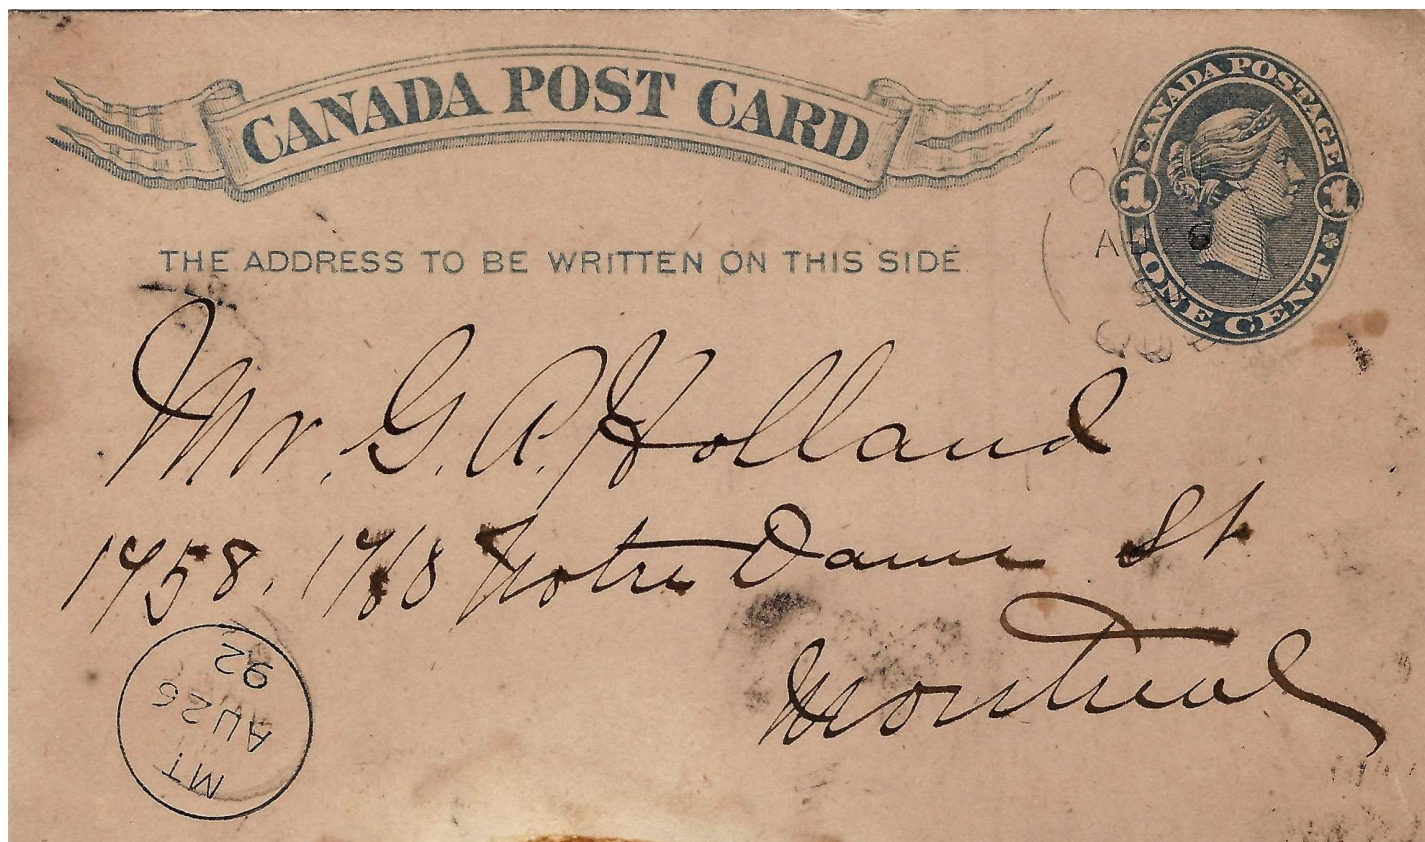 CANADA POST CARD
CANADA POSTAGE
1 1
ONE CENT
THE ADDRESS TO BE WRITTEN ON THIS SIDE.
Mr. G. A. Holland
1458, 1768 Notre Dame St
Montreal
MT
AU 26
92